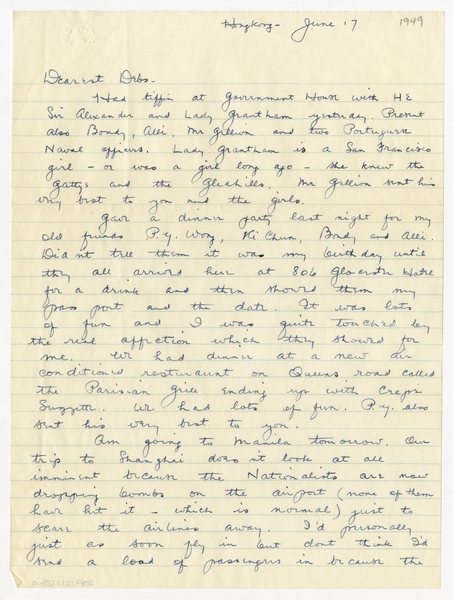 Hongkong - June 17 1949
Dearest Debs -
Had tiffin at Government House with HE
Sir Alexander and Lady Grantham yesterday. Present
also Bondy, Alli, Mr Gillion and two Portuguese
Naval officers. Lady Grantham is a San Francisco
girl - or was a girl long ago - she knew the
Gattys and the Gledhills. Mr Gillion sent his
very best to you and the girls.
Gave a dinner party last night for my
old friends P.Y. Wong, Ki Chun, Bondy and Alli.
Didn't tell them it was my birthday until
they all arrived here at 806 Gloucester Hotel
for a drink and then showed them my
pass port and the date. It was lots
of fun and I was quite touched by
the real affection which they showed for
me. We had dinner at a new air
conditioned restaurant on Queens road called
the Parisian Grill ending up with Crepe
Suzette. We had lots of fun. P.Y. also
sent his very best to you.
Am going to Manila tomorrow. Our
trip to Shanghai does n't look at all
imminent because the Nationalists are now
dropping bombs on the airport (none of them
have hit it - which is normal) just to
scare the airlines away. I'd personally
just as soon fly in but dont think I'd
send a load of passengers in because the